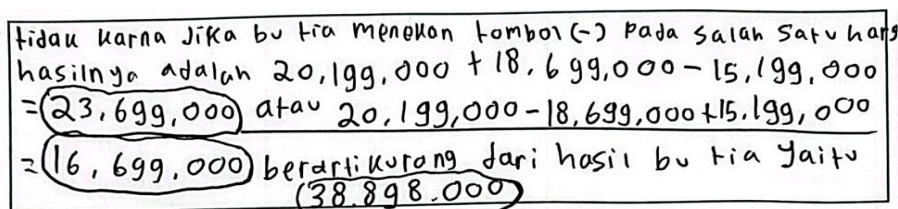 tidak karna Jika bu tia menekan tombol (-) Pada salah satu harg
hasilnya adalah 20,199,000 + 18,699,000 - 15,199,000
= 23,699,000 atau 20,199,000 - 18,699,000 + 15,199,000
= 16,699,000 berarti kurang dari hasil bu tia yaitu
(38.898.000)